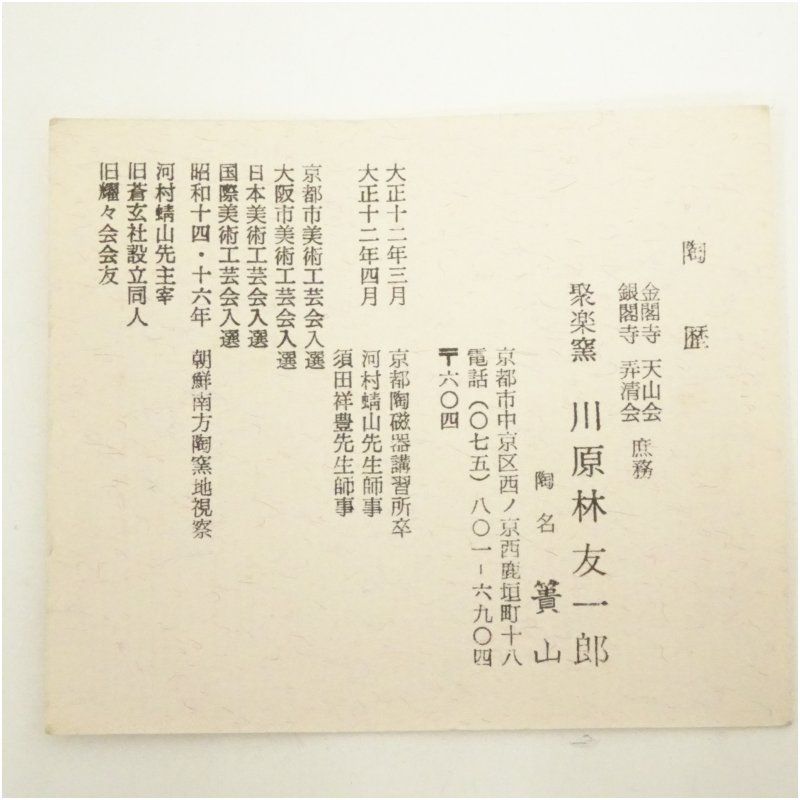 陶歴
金閣寺 天山会
銀閣寺 弄清会 庶務
聚楽窯 川原林友一郎
陶名 簀山
京都市中京区西ノ京西鹿垣町十八
電話(〇七五)八〇一-六九〇四
〒六〇四
大正十二年三月 京都陶磁器講習所卒
大正十二年四月 河村蜻山先生師事
須田祥豊先生師事
京都市美術工芸会入選
大阪市美術工芸会入選
日本美術工芸会入選
国際美術工芸会入選
昭和十四・十六年 朝鮮南方陶窯地視察
河村蜻山先主宰
旧蒼玄社設立同人
旧耀々会会友